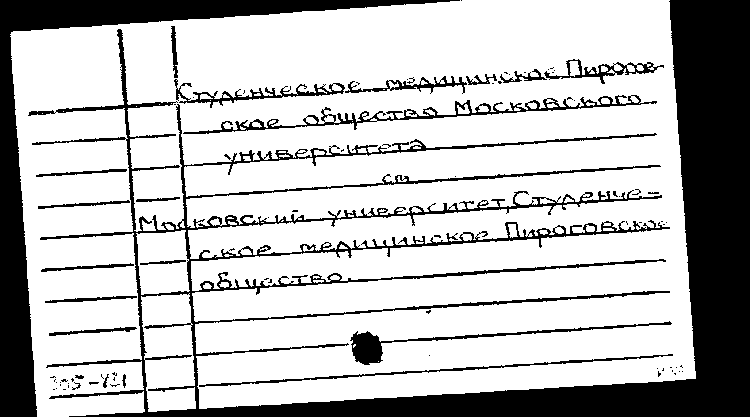 Студенческое медицинское Пирогов-
ское общество Московского
университета
см
Московский университет, Студенче=
ское медицинское Пироговское
общество.
305-421